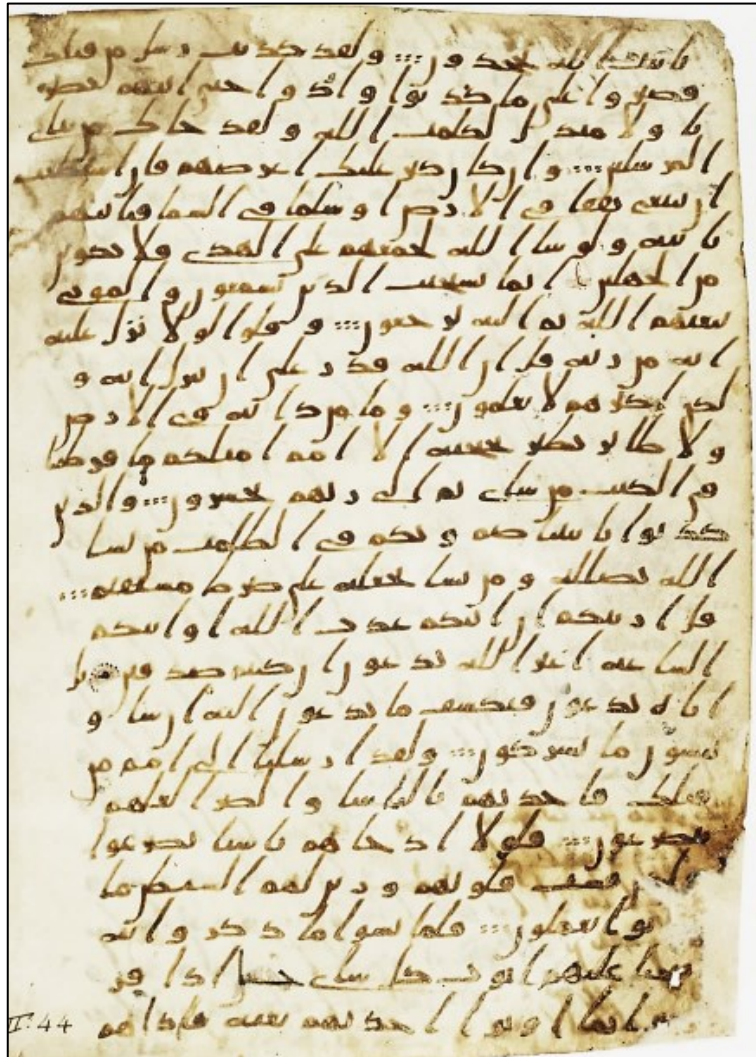 بايت الله يجحدون ولقد كذبت رسل من قبلك
فصبروا على ما كذبوا واوذوا حتى اتيهم نصر
نا ولا مبدل لكلمت الله ولقد جاك من نباى
المرسلين وان كان كبر عليك اعرضهم فان استطعت
ان تبتغى نفقا فى الارض او سلما فى السما فتاتيهم
باية ولو شا الله لجمعهم على الهدى فلا تكونن
من الجهلين انما يستجيب الذين يسمعون والموتى
يبعثهم الله ثم اليه يرجعون وقلوا لولا نزل عليه
اية من ربه قل ان الله قدر على ان ينزل اية و
لكن اكثرهم لا يعلمون وما من دابة فى الارض
ولا طير يطير بجنحيه الا امم امثلكم ما فرطنا
فى الكتب من شاى ثم الى ربهم يحشرون والذين
كذبوا بايتنا صم وبكم فى الظلمت من يشا
الله يضلله ومن يشا يجعله على صرط مستقيم
قل اريتكم ان اتيكم عذب الله او اتتكم
الساعة اغير الله تدعون ان كنتم صدقين بل
اياه تدعون فيكشف ما تدعون اليه ان شا و
تنسون ما تشركون ولقد ارسلنا الى امم من
قبلك فاخذنهم بالباسا والضرا لعلهم
يتضرعون فلولا اذ جاهم باسنا تضرعوا
ولكن قست قلوبهم وزين لهم الشيطن ما
نوا يعملون فلما نسوا ما ذكروا به
فتحنا عليهم ابوب كل شاى حتى اذا فر
حوا بما اوتوا اخذنهم بغتة فاذا هم
II:44